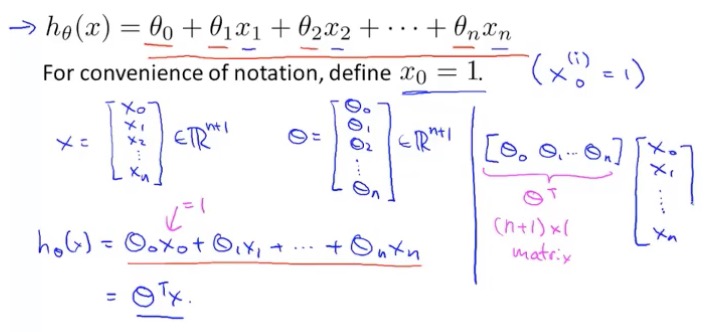 → hθ(x) = θ₀ + θ₁x₁ + θ₂x₂ + ⋯ + θₙxₙ
For convenience of notation, define x₀ = 1. (x₀⁽ⁱ⁾ = 1)
x = [x₀ x₁ x₂ ⋮ xₙ] ∈ ℝⁿ⁺¹ θ = [θ₀ θ₁ θ₂ ⋮ θₙ] ∈ ℝⁿ⁺¹
[θ₀ θ₁ ⋯ θₙ] [x₀ x₁ ⋮ xₙ]
θᵀ
(n+1) × 1
matrix
= 1
hθ(x) = θ₀x₀ + θ₁x₁ + ⋯ + θₙxₙ
= θᵀx.